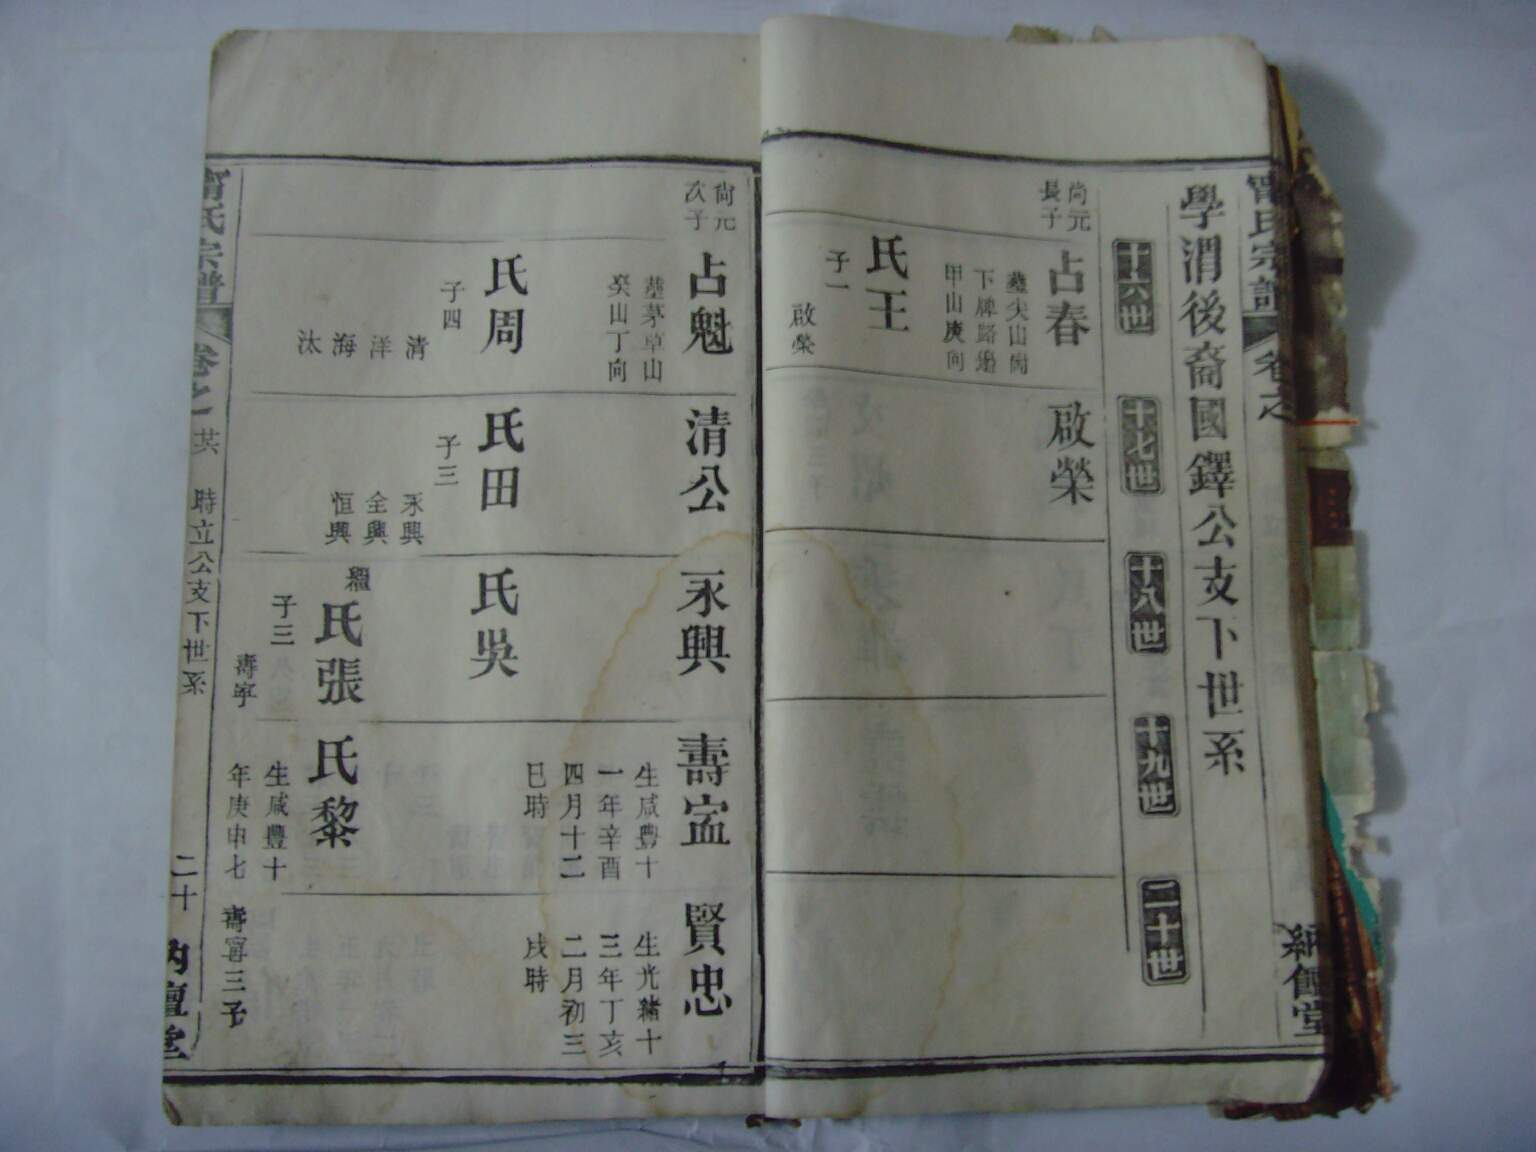 學渭後裔國鐸公支下世系
十六世
十七世
十八世
十九世
二十世
尚元
長子
占春
塟尖山岡
下牌路邊
甲山庚向
氏王
子一
啟榮
啟榮
尚元
次子
占魁
塟茅草山
癸山丁向
氏周
子四
清
洋
海
汰
清公
氏田
子三
永興
全興
恒興
永興
氏吳
繼
氏張
子三
壽寜
壽寍
生咸豐十
一年辛酉
四月十二
巳時
氏黎
生咸豐十
年庚申七
賢忠
生光緒十
三年丁亥
二月初三
戌時
壽甯三子
甯氏宗譜
卷之
時立公支下世系
二十